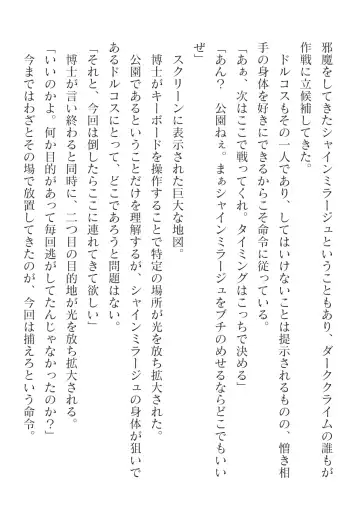 邪魔をしてきたシャインミラージュということもあり、ダーククライムの誰もが
作戦に立候補してきた。
ドルコスもその一人であり、してはいけないことは提示されるものの、憎き相
手の身体を好きにできるからこそ命令に従っている。
「あぁ、次はここで戦ってくれ。タイミングはこっちで決める」
「あん？　公園ねぇ。まぁシャインミラージュをブチのめせるならどこでもいい
ぜ」
スクリーンに表示された巨大な地図。
博士がキーボードを操作することで特定の場所が光を放ち拡大された。
公園であるということだけを理解するが、シャインミラージュの身体が狙いで
あるドルコスにとって、どこであろうと問題はない。
「それと、今回は倒したらここに連れてきて欲しい」
博士が言い終わると同時に、二つ目の目的地が光を放ち拡大される。
「いいのかよ。何か目的があって毎回逃がしてたんじゃなかったのか？」
今まではわざとその場で放置してきたのが、今回は捕えろという命令。